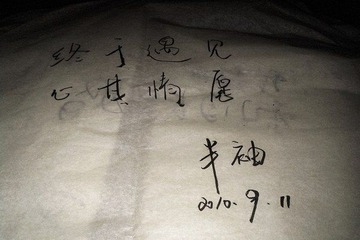 终于遇见
心甘情愿
半袖
2010.9.11